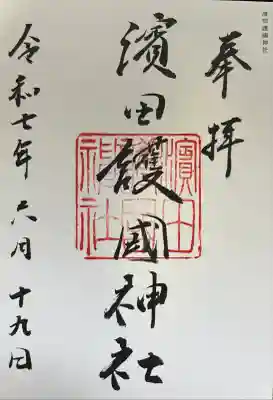 濱田護國神社
奉拝
濱田護國神社
濱田護國神社
令和七年六月十九日